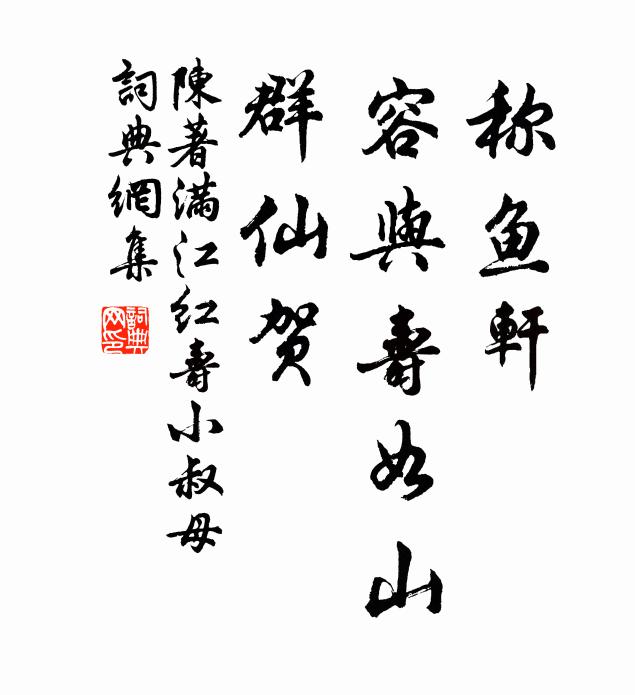 称鱼軒
容與壽如山
群仙贺
陳著满江红壽小叔母
詞典網集
詞典
网印